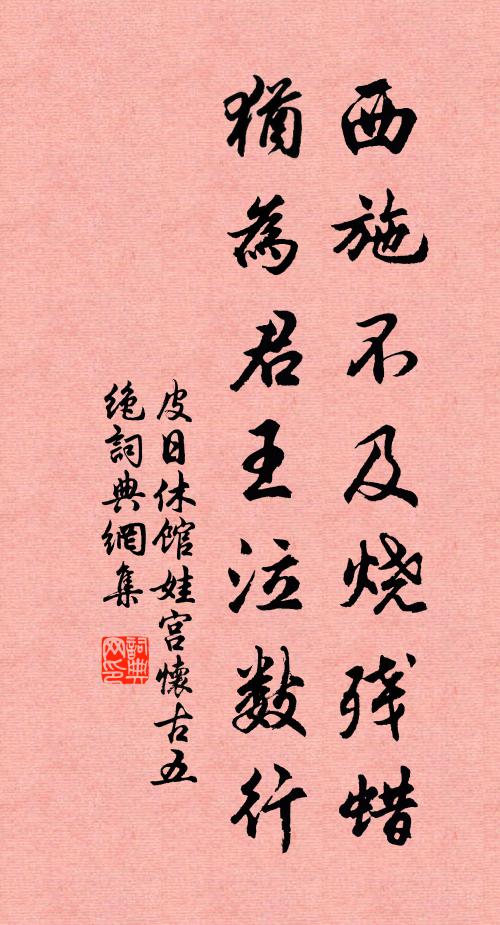 西施不及烧残蜡
猶為君王泣数行
皮日休馆娃宫懷古五
绝詞典網集
詞典网印